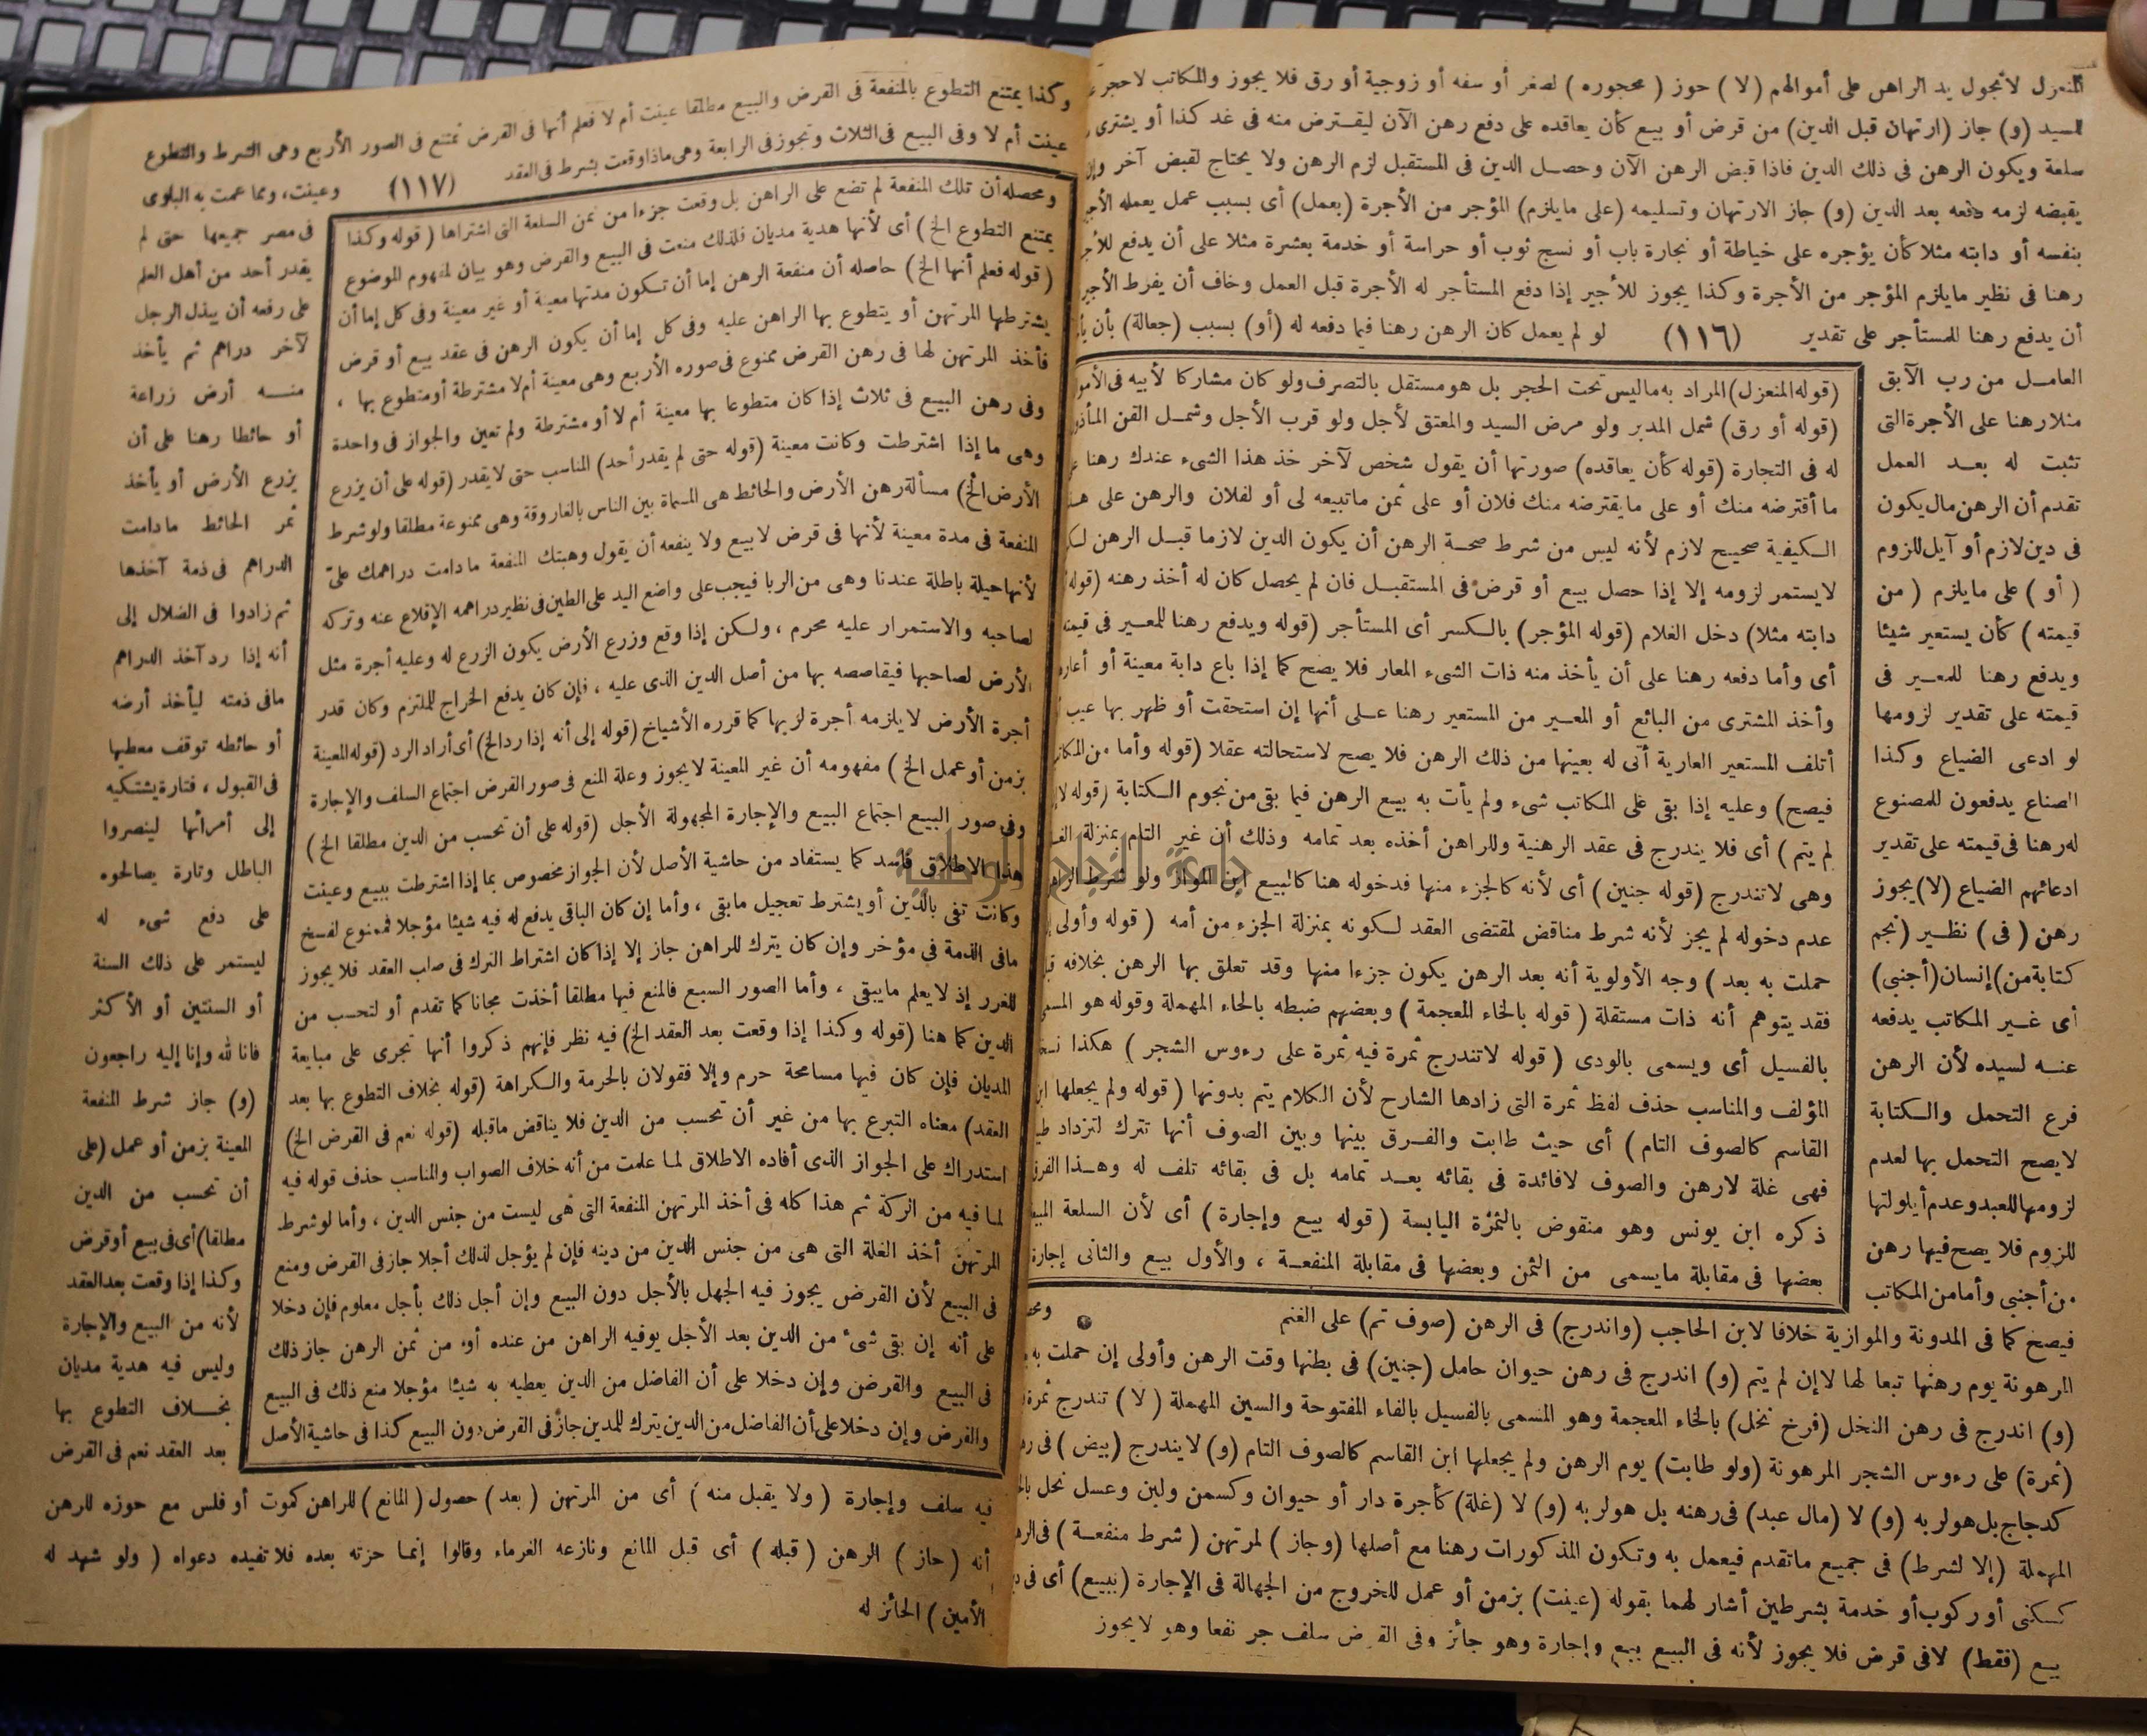 المنعزل لا تجول يد الراهن على أموالهم (لا) حوز (محجوره) لصغر أو سفه أو زوجية أو رق فلا يجوز والمكاتب لاحجر
للسيد (و) جاز (ارتهان قبل الدين) من قرض أو بيع كأن يعاقده على دفع رهن الآن ليقترض منه فى غد كذا أو يشترى
سلعة ويكون الرهن فى ذلك الدين فاذا قبض الرهن الآن وحصل الدين فى المستقبل لزم الرهن ولا يحتاج لقبض آخر وإن
يقبضه لزمه دفعه بعد الدين (و) جاز الارتهان وتسليمه (على مايلزم) المؤجر من الأجرة (بعمل) أى بسبب عمل يعمله
بنفسه أو دابته مثلا كأن يؤجره على خياطة أو نجارة باب أو نسج ثوب أو حراسة أو خدمة بعشرة مثلا على أن يدفع
رهنا فى نظير ما يلزم المؤجر من الأجرة وكذا يجوز للأجير إذا دفع المستأجر له الأجرة قبل العمل وخاف أن يفرط
أن يدفع رهنا للمستأجر على تقدير (١١٦) لو لم يعمل كان الرهن رهنا فيما دفعه له (أو) بسبب (جعالة) بأن
العامل من رب الآبق
مثلا رهنا على الأجرة التى
تثبت له بعد العمل
تقدم أن الرهن مال يكون
فى دين لازم أو آيل للزوم
(أو) على مايلزم (من
قيمته) كأن يستعير شيئا
ويدفع رهنا للمعير فى
قيمته على تقدير لزومها
لو ادعى الضياع وكذا
الصناع يدفعون للمصنوع
له رهنا فى قيمته على تقدير
ادعائهم الضياع (لا) يجوز
رهن (فى) نظير (نجم
كتابة من) إنسان (أجنبي)
أى غير المكاتب يدفعه
عنه لسيده لأن الرهن
فرع التحمل والكتابة
لا يصح التحمل بها لعدم
لزومها للعبد وعدم أيلولتها
للزوم فلا يصح فيها رهن
من أجنبي وأما من المكاتب
(قوله المنعزل) المراد به ماليس تحت الحجر بل هو مستقل بالتصرف ولو كان مشاركا لأبيه فى
(قوله أو رق) شمل المدبر ولو مرض السيد والمعتق لأجل ولو قرب الأجل وشمل القن
له فى التجارة (قوله كأن يعاقده) صورتها أن يقول شخص لآخر خذ هذا الشىء عندك رهنا
ما أقترضه منك أو على ما يقترضه منك فلان أو على ثمن ماتبيعه لى أو لفلان والرهن على
الكيفية صحيح لازم لأنه ليس من شرط صحة الرهن أن يكون الدين لازما قبل الرهن
لا يستمر لزومه إلا إذا حصل بيع أو قرض فى المستقبل فان لم يحصل كان له أخذ رهنه (قوله
دابته مثلا) دخل الغلام (قوله المؤجر) بالكسر أى المستأجر (قوله ويدفع رهنا للمعير فى
أى وأما دفعه رهنا على أن يأخذ منه ذات الشىء المعار فلا يصح كما إذا باع دابة معينة أو
وأخذ المشترى من البائع أو المعير من المستعير رهنا على أنها إن استحقت أو ظهر بها عيب
أتلف المستعير العارية أتى له بعينها من ذلك الرهن فلا يصح لاستحالته عقلا (قوله وأما من
فيصح) وعليه إذا بقى على المكاتب شىء ولم يأت به بيع الرهن فيما بقى من نجوم الكتابة (قوله
لم يتم) أى فلا يندرج فى عقد الرهنية وللراهن أخذه بعد تمامه وذلك أن غير التام بمنزلة
وهى لا تندرج (قوله جنين) أى لأنه كالجزء منها فدخوله هنا كالبيع ولو شرط
عدم دخوله لم يجز لأنه شرط مناقض لمقتضى العقد لكونه بمنزلة الجزء من أمه (قوله وأولى
حملت به بعد) وجه الأولوية أنه بعد الرهن يكون جزءا منها وقد تعلق بها الرهن بخلافه
فقد يتوهم أنه ذات مستقلة (قوله بالخاء المعجمة) وبعضهم ضبطه بالحاء المهملة وقوله هو
بالفسيل أى ويسمى بالودى (قوله لاتندرج ثمرة فيه ثمرة على رءوس الشجر) هكذا
المؤلف والمناسب حذف لفظ ثمرة التى زادها الشارح لأن الكلام يتم بدونها (قوله ولم يجعلها
القاسم كالصوف التام) أى حيث طابت والفرق بينها وبين الصوف أنها تترك لتزداد
فهى غلة لارهن والصوف لافائدة فى بقائه بعد تمامه بل فى بقائه تلف له وهذا
ذكره ابن يونس وهو منقوض بالثمرة اليابسة (قوله بيع وإجارة) أى لأن السلعة
بعضها فى مقابلة مايسمى من الثمن وبعضها فى مقابلة المنفعة ، والأول بيع والثانى إجارة
فيصح كما فى المدونة والموازية خلافا لابن الحاجب (واندرج) فى الرهن (صوف تم) على الغنم
المرهونة يوم رهنها تبعا لها لا إن لم يتم (و) اندرج فى رهن حيوان حامل (جنين) فى بطنها وقت الرهن وأولى إن حملت به
(و) اندرج فى رهن النخل (فرخ نخل) بالخاء المعجمة وهو المسمى بالفسيل بالفاء المفتوحة والسين المهملة (لا) تندرج
(ثمرة) على رءوس الشجر المرهونة (ولو طابت) يوم الرهن ولم يجعلها ابن القاسم كالصوف التام (و) لا يندرج (بيض) فى
كدجاج بل هو لربه (و) لا (مال عبد) فى رهنه بل هو لربه (و) لا (غلة) كأجرة دار أو حيوان وكسمن ولبن وعسل نحل
المهملة (إلا لشرط) فى جميع ماتقدم فيعمل به وتكون المذكورات رهنا مع أصلها (وجاز) لمرتهن (شرط منفعة)
كسكنى أو ركوب أو خدمة بشرطين أشار لهما بقوله (عينت) بزمن أو عمل للخروج من الجهالة فى الإجارة (ببيع) أى فى
بيع (فقط) لافى قرض فلا يجوز لأنه فى البيع بيع وإجارة وهو جائز وفى القرض سلف جر نفعا وهو لا يجوز
وكذا يمتنع التطوع بالمنفعة فى القرض والبيع مطلقا عينت أم لا فعلم أنها فى القرض تمتنع فى الصور الأربع وهى الشرط والتطوع
عينت أم لا وفى البيع فى الثلاث وتجوز فى الرابعة وهى ماذا وقعت بشرط فى العقد (١١٧) وعينت، ومما عمت به البلوى
فى مصر جميعها حتى لم
يقدر أحد من أهل العلم
على رفعه أن يبذل الرجل
لآخر دراهم ثم يأخذ
منه أرض زراعة
أو حائطا رهنا على أن
يزرع الأرض أو يأخذ
ثمر الحائط مادامت
الدراهم فى ذمة آخذها
ثم زادوا فى الضلال إلى
أنه إذا رد آخذ الدراهم
مافى ذمته ليأخذ أرضه
أو حائطه توقف معطيها
فى القبول ، فتارة يشتكيه
إلى أمرائها لينصروا
الباطل وتارة يصالحوه
على دفع شىء له
ليستمر على ذلك السنة
أو السنتين أو الأكثر
فانا لله وإنا إليه راجعون
(و) جاز شرط المنفعة
المعينة بزمن أو عمل (على
أن تحسب من الدين
مطلقا) أى فى بيع أو قرض
وكذا إذا وقعت بعد العقد
لأنه من البيع والإجارة
وليس فيه هدية مديان
بخلاف التطوع بها
بعد العقد نعم فى القرض
ومحصله أن تلك المنفعة لم تضع على الراهن بل وقعت جزءا من ثمن السلعة التى اشتراها (قوله وكذا
يمتنع التطوع الخ) أى لأنها هدية مديان فلذلك منعت فى البيع والقرض وهو بيان لمفهوم الموضوع
(قوله فعلم أنها الخ) حاصله أن منفعة الرهن إما أن تكون مدتها معينة أو غير معينة وفى كل إما أن
يشترطها المرتهن أو يتطوع بها الراهن عليه وفى كل إما أن يكون الرهن فى عقد بيع أو قرض
فأخذ المرتهن لها فى رهن القرض ممنوع فى صوره الأربع وهى معينة أم لا مشترطة أو متطوع بها ،
وفى رهن البيع فى ثلاث إذا كان متطوعا بها معينة أم لا أو مشترطة ولم تعين والجواز فى واحدة
وهى ما إذا اشترطت وكانت معينة (قوله حتى لم يقدر أحد) المناسب حتى لا يقدر (قوله على أن يزرع
الأرض الخ) مسألة رهن الأرض والحائط هى المسماة بين الناس بالغاروقة وهى ممنوعة مطلقا ولو شرط
المنفعة فى مدة معينة لأنها فى قرض لا بيع ولا ينفعه أن يقول وهبتك المنفعة مادامت دراهمك علىّ
لأنها حيلة باطلة عندنا وهى من الربا فيجب على واضع اليد على الطين فى نظير دراهمه الإقلاع عنه وتركه
لصاحبه والاستمرار عليه محرم ، ولكن إذا وقع وزرع الأرض يكون الزرع له وعليه أجرة مثل
الأرض لصاحبها فيقاصصه بها من أصل الدين الذى عليه ، فإن كان يدفع الخراج للملتزم وكان قدر
أجرة الأرض لا يلزمه أجرة لربها كما قرره الأشياخ (قوله إلى أنه إذا رد الخ) أى أراد الرد (قوله المعينة
بزمن أو عمل الخ) مفهومه أن غير المعينة لا يجوز وعلة المنع فى صور القرض اجتماع السلف والإجارة
وفى صور البيع اجتماع البيع والإجارة المجهولة الأجل (قوله على أن تحسب من الدين مطلقا الخ)
هذا الاطلاق فاسد كما يستفاد من حاشية الأصل لأن الجواز مخصوص بما إذا اشترطت ببيع وعينت
وكانت تفى بالدّين أو يشترط تعجيل مابقى ، وأما إن كان الباقى يدفع له فيه شيئا مؤجلا فممنوع لفسخ
مافى الذمة في مؤخر وإن كان يترك للراهن جاز إلا إذا كان اشتراط الترك فى صلب العقد فلا يجوز
للغرر إذ لا يعلم مايبقى ، وأما الصور السبع فالمنع فيها مطلقا أخذت مجانا كما تقدم أو لتحسب من
الدين كما هنا (قوله وكذا إذا وقعت بعد العقد الخ) فيه نظر فإنهم ذكروا أنها تجرى على مبايعة
المديان فإن كان فيها مسامحة حرم وإلا فقولان بالحرمة والكراهة (قوله بخلاف التطوع بها بعد
العقد) معناه التبرع بها من غير أن تحسب من الدين فلا يناقض ماقبله (قوله نعم فى القرض الخ)
استدراك على الجواز الذى أفاده الاطلاق لما علمت من أنه خلاف الصواب والمناسب حذف قوله فيه
لما فيه من الركة ثم هذا كله فى أخذ المرتهن المنفعة التى هى ليست من جنس الدين ، وأما لو شرط
المرتهن أخذ الغلة التى هى من جنس الدين من دينه فإن لم يؤجل لذلك أجلا جاز فى القرض ومنع
فى البيع لأن القرض يجوز فيه الجهل بالأجل دون البيع وإن أجل ذلك بأجل معلوم فإن دخلا
على أنه إن بقى شىء من الدين بعد الأجل يوفيه الراهن من عنده أو من ثمن الرهن جاز ذلك
فى البيع والقرض وإن دخلا على أن الفاضل من الدين يعطيه به شيئا مؤجلا منع ذلك فى البيع
والقرض وإن دخلا على أن الفاضل من الدين يترك للمدين جاز فى القرض دون البيع كذا فى حاشية الأصل
فيه سلف وإجارة (ولا يقبل منه) أى من المرتهن (بعد) حصول (المانع) للراهن كموت أو فلس مع حوزه للرهن
أنه (حاز) الرهن (قبله) أى قبل المانع ونازعه الغرماء وقالوا إنما حزته بعده فلا تفيده دعواه (ولو شهد له
الأمين) الحائز له
جامعة النجاح الوطنية